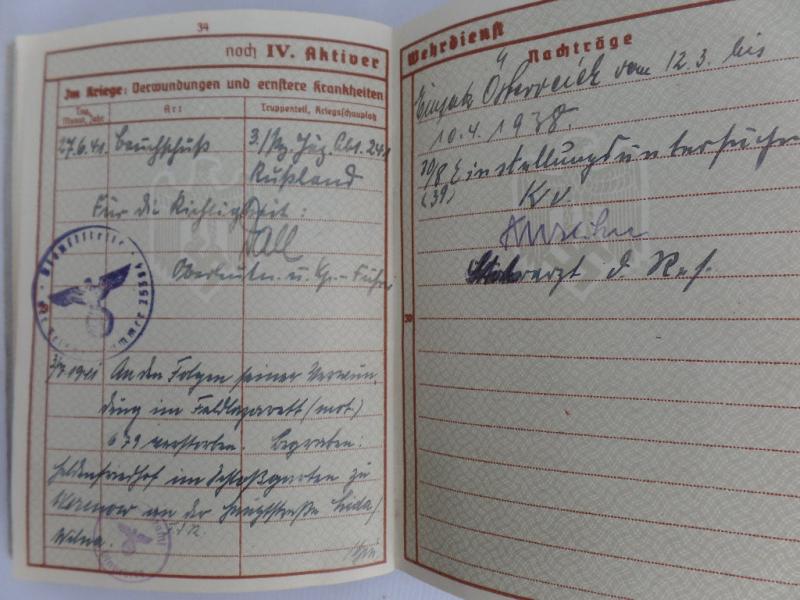 34
noch IV. Aktiver
Im Kriege: Verwundungen und ernstere Krankheiten
Tag, Monat, Jahr
Art
Truppenteil, Kriegsschauplatz
27.6.41. Bauchschuß 3./Pz. Jäg. Abt. 241
Rußland
Für die Richtigkeit:
Oberleutn. u. Kp.-Führer
Dienststelle
3/7.1941 An den Folgen seiner Verwun-
dung im Feldlazarett (mot.)
679 verstorben. Begraben:
Heldenfriedhof im Schloßgarten zu
an der Hauptstraße Lida/
Wilna.
Wehrdienst
Nachträge
Einsatz Österreich vom 12.3. bis
10.4.1938.
20/8 Einstellungsuntersuchung
(39) Kv.
Stabsarzt d. Res.
30